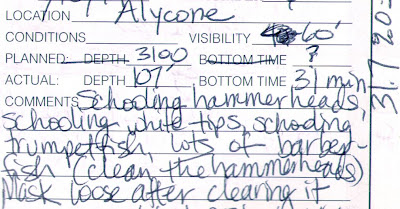 LOCATION Alycone
CONDITIONS VISIBILITY 60'
PLANNED: DEPTH 3100 BOTTOM TIME ?
ACTUAL: DEPTH 107' BOTTOM TIME 31 min
COMMENTS Schooling hammerheads,
schooling white tips, schooling
trumpetfish, lots of barber-
fish (clean the hammerheads)
Mask loose after clearing it